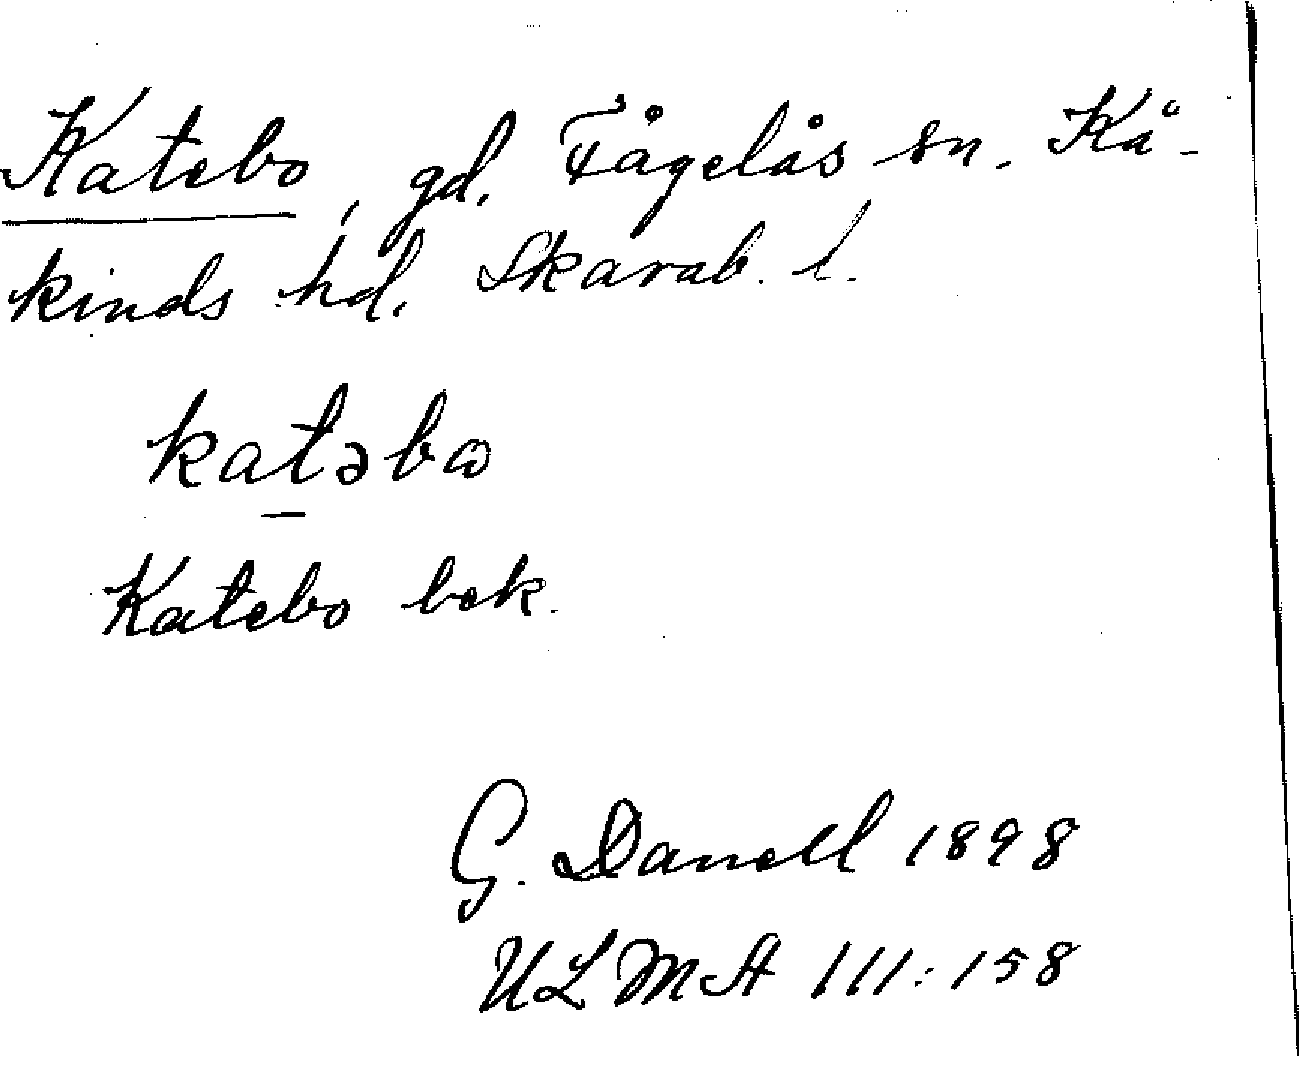 Katebo, gd. Fågelås sn. Kå-
kinds hd. Skarab. l.
katəbɷ
Katebo bek.
G. Danell 1898
ULMA 111:158